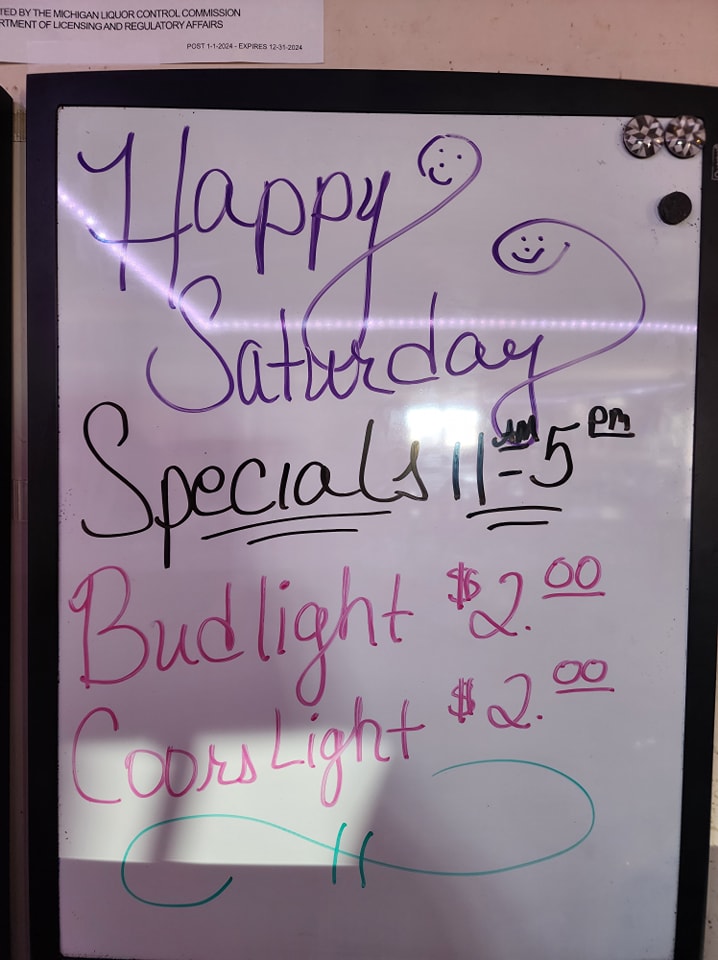 TED BY THE MICHIGAN LIQUOR CONTROL COMMISSION
RTMENT OF LICENSING AND REGULATORY AFFAIRS
POST 1-1-2024 - EXPIRES 12-31-2024
Happy
Saturday
Specials 11AM-5PM
Budlight $2.00
Coors Light $2.00